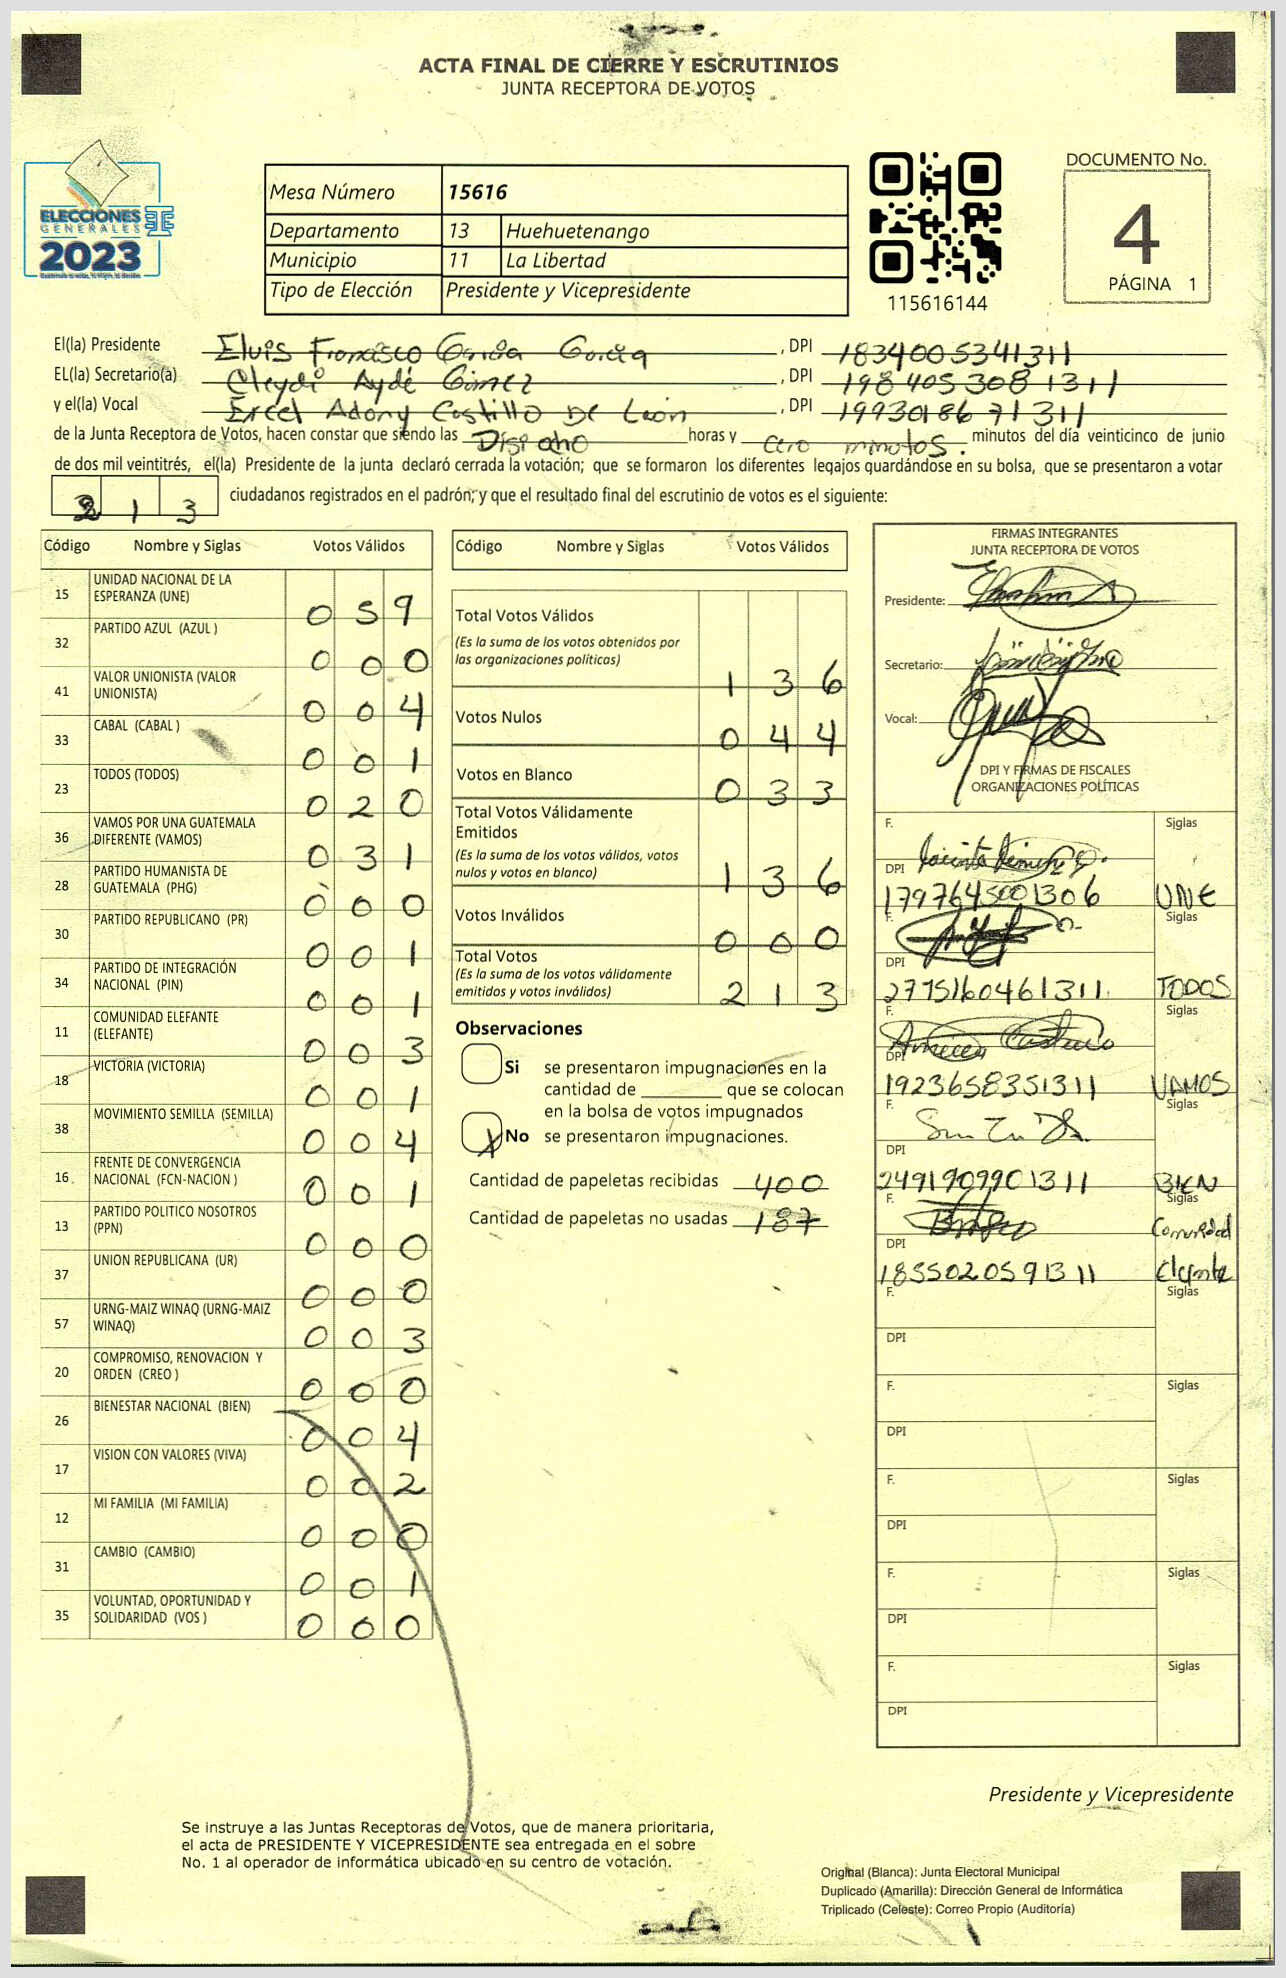 ACTA FINAL DE CIERRE Y ESCRUTINIOS
JUNTA RECEPTORA DE VOTOS
ELECCIONES
GENERALES
2023
Mesa Número 15616
Departamento 13 Huehuetenango
Municipio 11 La Libertad
Tipo de Elección Presidente y Vicepresidente
115616144
DOCUMENTO No.
4
PÁGINA 1
El(la) Presidente Eluis Francisco García García , DPI 1834005341311
EL(la) Secretario(a) Cleydi Aydé Gómez , DPI 1984053081311
y el(la) Vocal Ercel Adony Castillo De León , DPI 1993018671311
de la Junta Receptora de Votos, hacen constar que siendo las horas y cero minutos. minutos del día veinticinco de junio
de dos mil veintitrés, el(la) Presidente de la junta declaró cerrada la votación; que se formaron los diferentes legajos guardándose en su bolsa, que se presentaron a votar
213 ciudadanos registrados en el padrón; y que el resultado final del escrutinio de votos es el siguiente:
Código Nombre y Siglas Votos Válidos
15 UNIDAD NACIONAL DE LA
ESPERANZA (UNE) 0 5 9
32 PARTIDO AZUL (AZUL ) 0 0 0
41 VALOR UNIONISTA (VALOR
UNIONISTA) 0 0 4
33 CABAL (CABAL ) 0 0 1
23 TODOS (TODOS) 0 2 0
36 VAMOS POR UNA GUATEMALA
DIFERENTE (VAMOS) 0 3 1
28 PARTIDO HUMANISTA DE
GUATEMALA (PHG) 0 0 0
30 PARTIDO REPUBLICANO (PR) 0 0 1
34 PARTIDO DE INTEGRACIÓN
NACIONAL (PIN) 0 0 1
11 COMUNIDAD ELEFANTE
(ELEFANTE) 0 0 3
18 VICTORIA (VICTORIA) 0 0 1
38 MOVIMIENTO SEMILLA (SEMILLA) 0 0 4
16 FRENTE DE CONVERGENCIA
NACIONAL (FCN-NACION ) 0 0 1
13 PARTIDO POLITICO NOSOTROS
(PPN) 0 0 0
37 UNION REPUBLICANA (UR) 0 0 0
57 URNG-MAIZ WINAQ (URNG-MAIZ
WINAQ) 0 0 3
20 COMPROMISO, RENOVACION Y
ORDEN (CREO ) 0 0 0
26 BIENESTAR NACIONAL (BIEN) 0 0 4
17 VISION CON VALORES (VIVA) 0 0 2
12 MI FAMILIA (MI FAMILIA) 0 0 0
31 CAMBIO (CAMBIO) 0 0 1
35 VOLUNTAD, OPORTUNIDAD Y
SOLIDARIDAD (VOS ) 0 0 0
Código Nombre y Siglas Votos Válidos
Total Votos Válidos
(Es la suma de los votos obtenidos por
las organizaciones políticas) 1 3 6
Votos Nulos 0 4 4
Votos en Blanco 0 3 3
Total Votos Válidamente
Emitidos
(Es la suma de los votos válidos, votos
nulos y votos en blanco) 1 3 6
Votos Inválidos 0 0 0
Total Votos
(Es la suma de los votos válidamente
emitidos y votos inválidos) 2 1 3
Observaciones
Si se presentaron impugnaciones en la
cantidad de ________ que se colocan
en la bolsa de votos impugnados
X No se presentaron impugnaciones.
Cantidad de papeletas recibidas 400
Cantidad de papeletas no usadas 187
FIRMAS INTEGRANTES
JUNTA RECEPTORA DE VOTOS
Presidente:
Secretario:
Vocal:
DPI Y FIRMAS DE FISCALES
ORGANIZACIONES POLÍTICAS
F. Siglas
DPI 1797645001306 UNE
F. Siglas
DPI 2775160461311 TODOS
F. Siglas
DPI 1923658351311 VAMOS
F. Siglas
DPI 2491909901311 BIEN
F. Siglas
Comunidad
DPI 1855020591311 Elefante
F. Siglas
DPI
F. Siglas
DPI
F. Siglas
DPI
F. Siglas
DPI
F. Siglas
DPI
Presidente y Vicepresidente
Se instruye a las Juntas Receptoras de Votos, que de manera prioritaria,
el acta de PRESIDENTE Y VICEPRESIDENTE sea entregada en el sobre
No. 1 al operador de informática ubicado en su centro de votación.
Original (Blanca): Junta Electoral Municipal
Duplicado (Amarilla): Dirección General de Informática
Triplicado (Celeste): Correo Propio (Auditoría)